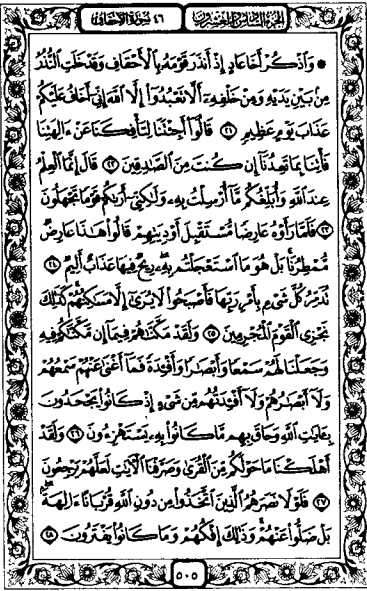 الجزء السادس والعشرون ٤٦ سورة الأحقاف
۞ وَٱذْكُرْ أَخَا عَادٍ إِذْ أَنذَرَ قَوْمَهُۥ بِٱلْأَحْقَافِ وَقَدْ خَلَتِ ٱلنُّذُرُ
مِنۢ بَيْنِ يَدَيْهِ وَمِنْ خَلْفِهِۦٓ أَلَّا تَعْبُدُوٓا۟ إِلَّا ٱللَّهَ إِنِّىٓ أَخَافُ عَلَيْكُمْ
عَذَابَ يَوْمٍ عَظِيمٍ ٢١ قَالُوٓا۟ أَجِئْتَنَا لِتَأْفِكَنَا عَنْ ءَالِهَتِنَا
فَأْتِنَا بِمَا تَعِدُنَآ إِن كُنتَ مِنَ ٱلصَّـٰدِقِينَ ٢٢ قَالَ إِنَّمَا ٱلْعِلْمُ
عِندَ ٱللَّهِ وَأُبَلِّغُكُم مَّآ أُرْسِلْتُ بِهِۦ وَلَـٰكِنِّىٓ أَرَىٰكُمْ قَوْمًا تَجْهَلُونَ
٢٣ فَلَمَّا رَأَوْهُ عَارِضًا مُّسْتَقْبِلَ أَوْدِيَتِهِمْ قَالُوا۟ هَـٰذَا عَارِضٌ
مُّمْطِرُنَا ۚ بَلْ هُوَ مَا ٱسْتَعْجَلْتُم بِهِۦ ۖ رِيحٌ فِيهَا عَذَابٌ أَلِيمٌ ٢٤
تُدَمِّرُ كُلَّ شَىْءٍۭ بِأَمْرِ رَبِّهَا فَأَصْبَحُوا۟ لَا يُرَىٰٓ إِلَّا مَسَـٰكِنُهُمْ ۚ كَذَٰلِكَ
نَجْزِى ٱلْقَوْمَ ٱلْمُجْرِمِينَ ٢٥ وَلَقَدْ مَكَّنَّـٰهُمْ فِيمَآ إِن مَّكَّنَّـٰكُمْ فِيهِ
وَجَعَلْنَا لَهُمْ سَمْعًا وَأَبْصَـٰرًا وَأَفْـِٔدَةً فَمَآ أَغْنَىٰ عَنْهُمْ سَمْعُهُمْ
وَلَآ أَبْصَـٰرُهُمْ وَلَآ أَفْـِٔدَتُهُم مِّن شَىْءٍ إِذْ كَانُوا۟ يَجْحَدُونَ
بِـَٔايَـٰتِ ٱللَّهِ وَحَاقَ بِهِم مَّا كَانُوا۟ بِهِۦ يَسْتَهْزِءُونَ ٢٦ وَلَقَدْ
أَهْلَكْنَا مَا حَوْلَكُم مِّنَ ٱلْقُرَىٰ وَصَرَّفْنَا ٱلْـَٔايَـٰتِ لَعَلَّهُمْ يَرْجِعُونَ
٢٧ فَلَوْلَا نَصَرَهُمُ ٱلَّذِينَ ٱتَّخَذُوا۟ مِن دُونِ ٱللَّهِ قُرْبَانًا ءَالِهَةًۢ ۖ
بَلْ ضَلُّوا۟ عَنْهُمْ ۚ وَذَٰلِكَ إِفْكُهُمْ وَمَا كَانُوا۟ يَفْتَرُونَ ٢٨
٥٠٥